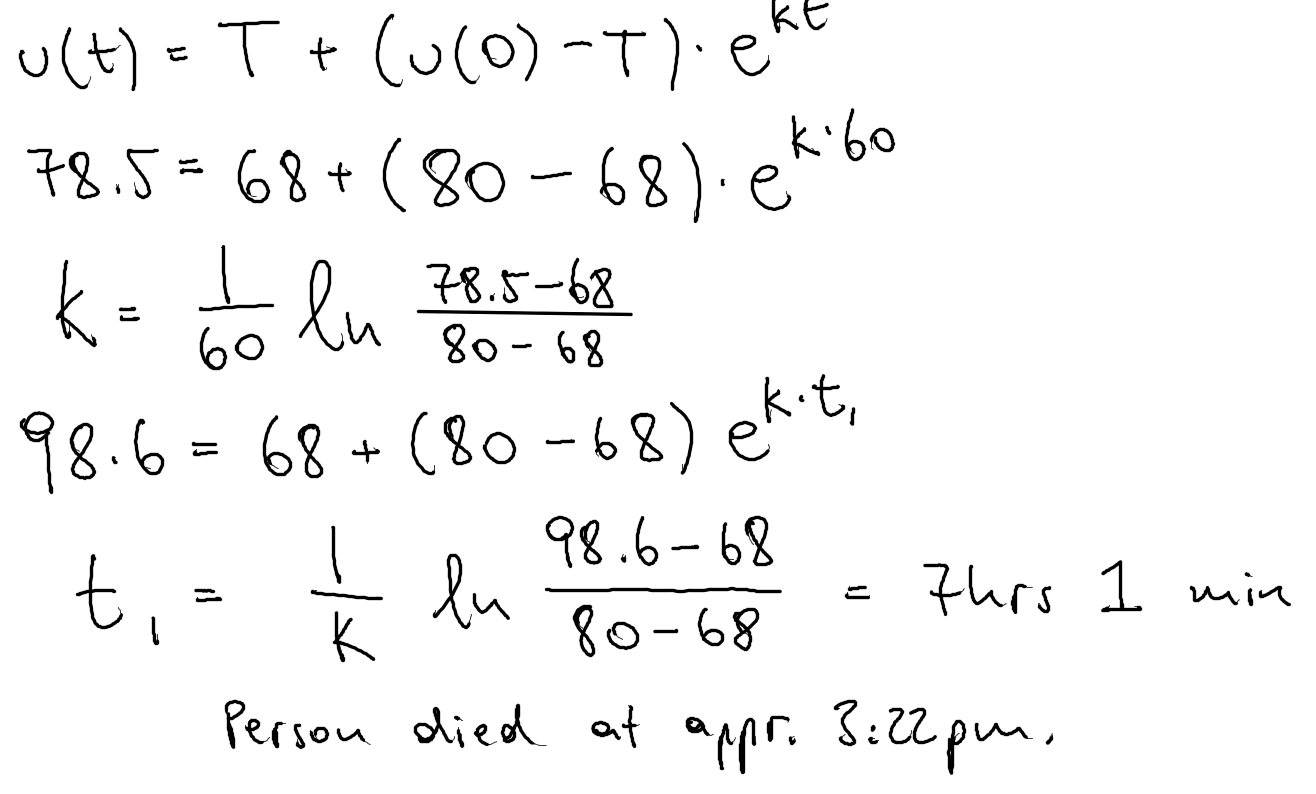 u(t) = T + (u(0) - T) · e^{kt}
78.5 = 68 + (80 - 68) · e^{k·60}
k = \frac{1}{60} ln \frac{78.5-68}{80-68}
98.6 = 68 + (80 - 68) e^{k·t_1}
t_1 = \frac{1}{k} ln \frac{98.6-68}{80-68} = 7hrs 1 min
Person died at appr. 3:22pm.